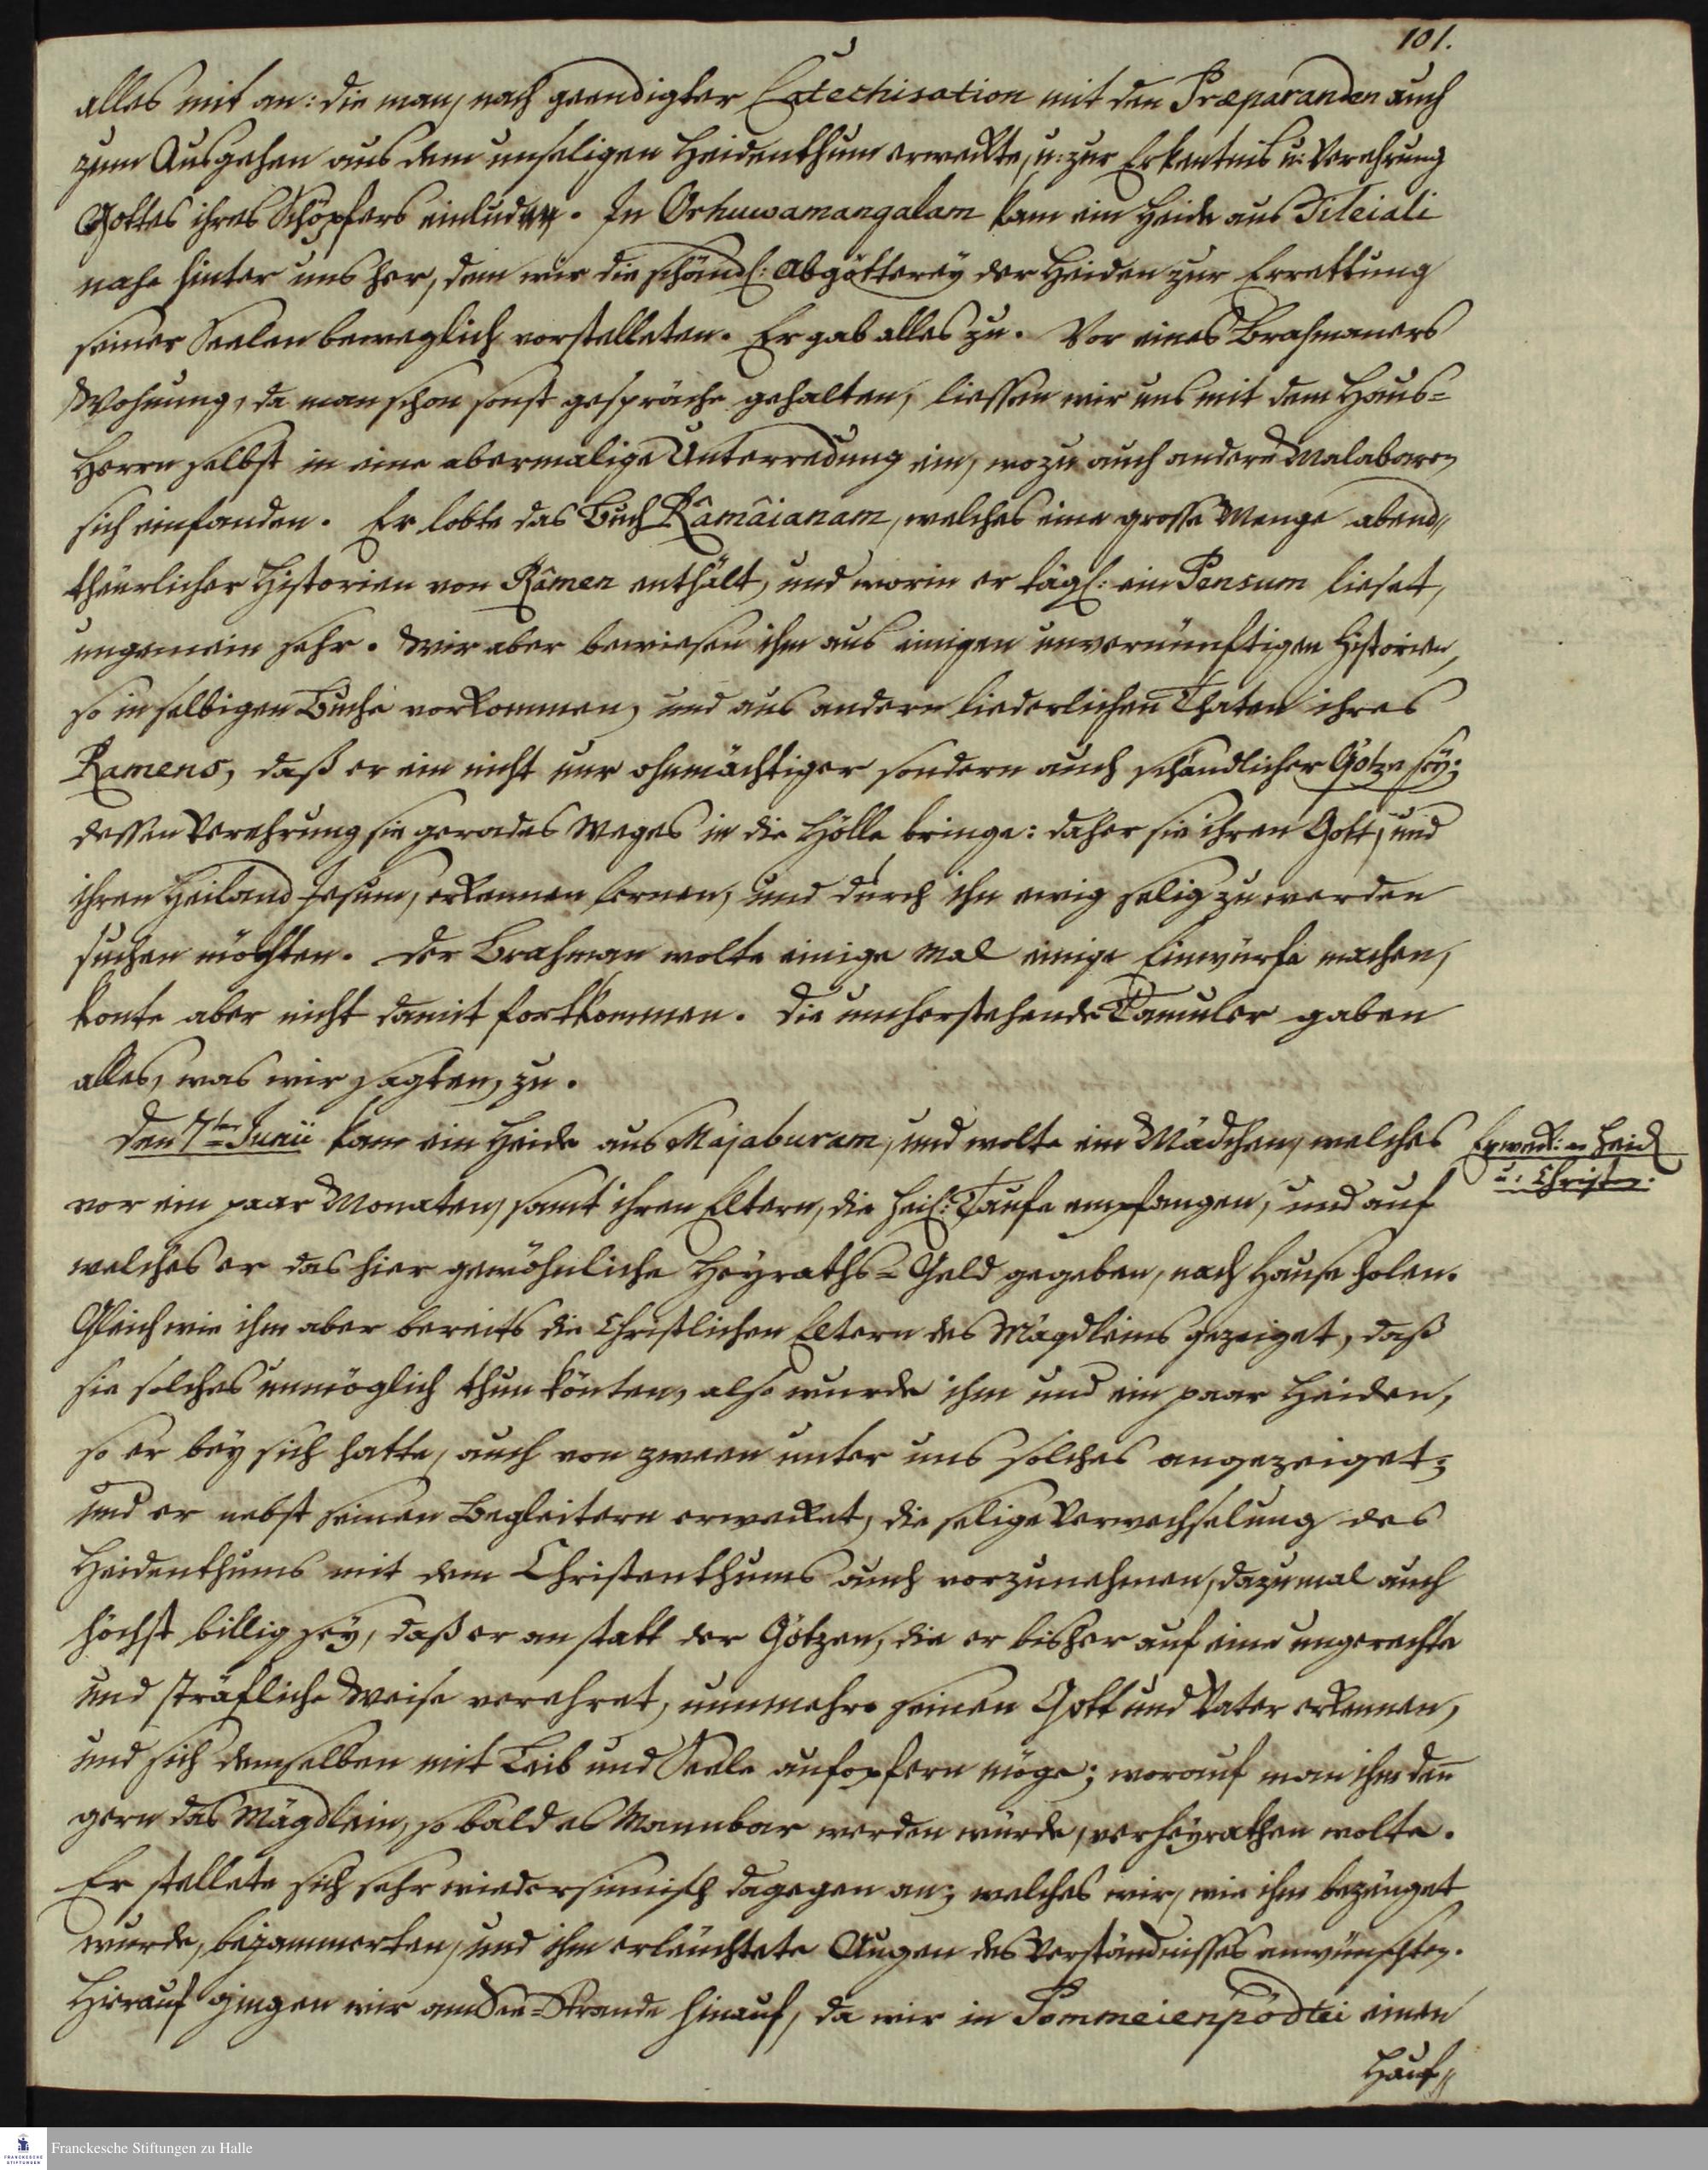 101.
alles mit an: die man, nach geendigter Catechisation mit den Præparanden auch
zum Ausgehen aus dem unseligen Heidenthum erweckte, u: zur Erkentnis u: Verehrung
Gottes ihres Schöpfers einluden. In Orhuwamangalam kam ein Heide aus Tileiali
nahe hinter uns her, dem wir die schändl: Abgötterey der Heiden zur Errettung
seiner Seelen beweglich vorstelleten. Er gab alles zu. Vor eines Brahmaners
Wohnung, da man schon sonst gespräche gehalten, liessen wir uns mit dem Haus=
Herrn selbst in eine abermalige Unterredung ein, wozu auch andere Malabaren
sich einfanden. Er lobte das Buch Râmâianam, welches eine grosse Menge abend„
theurlicher Historien von Râmen enthält, und worin er tägl: ein Pensum lieset,
ungemein sehr. Wir aber bewiesen ihm aus einigen unvernünftigen Historien,
so in selbigen Buche vorkommen, und aus andern liederlichen Thaten ihres
Ramens, daß er ein nicht nur ohnmächtiger sondern auch schändlicher Götze sey;
dessen Verehrung sie gerades Weges in die Hölle bringe: daher sie ihren Gott, und
ihren Heiland Jesum, erkennen lernen, und durch ihn ewig selig zu werden
suchen möchten. Der Brahman wolte einige Mal einige Einwürfe machen,
konte aber nicht damit fortkommen. Die umherstehende Tamuler gaben
alles, was wir sagten, zu.
Den 7ten Junii kam ein Heide aus Majaburam, und wolte ein Mädchen, welches
Erweck: n Heid
u: Christen.
vor ein paar Monaten, samt ihren Eltern, die heil: Taufe empfangen, und auf
welches er das hier gewöhnliche Heyraths=Geld gegeben, nach Hause holen.
Gleichwie ihm aber bereits die Christlichen Eltern des Mägdleins gezeiget, daß
sie solches unmöglich thun könten, also wurde ihm und ein paar Heiden,
so er bey sich hatte, auch von zween unter uns solches angezeiget;
und er nebst seinen Begleitern erwecket, die selige Verwechselung des
Heidenthums mit dem Christenthums auch vorzunehmen, dazumal auch
höchst billig sey, daß er an statt der Götzen, die er bisher auf eine ungerechte
und sträfliche Weise verehret, nunmehro seinen Gott und Vater erkennen,
und sich demselben mit Leib und Seele aufopfern möge; worauf man ihm den
gern das Mägdlein, so bald es Mannbar werden würde, verheyrathen wolte.
Er stellete sich sehr wiedersinnisch dagegen an; welches wir, wie ihm bezeuget
wurde, bejammerten, und ihm erleuchtete Augen des Verständnisses anwünschten.
Hierauf gingen wir am See-Strande hinauf, da wir in Pommeienpödtei einen
Hauf„
Franckesche Stiftungen zu Halle